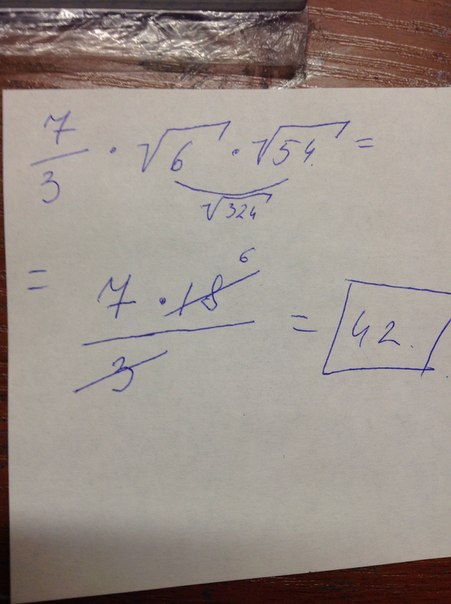 7/3 · √6 · √54 =
√324
= 7 · 18 6 / 3 = 42.